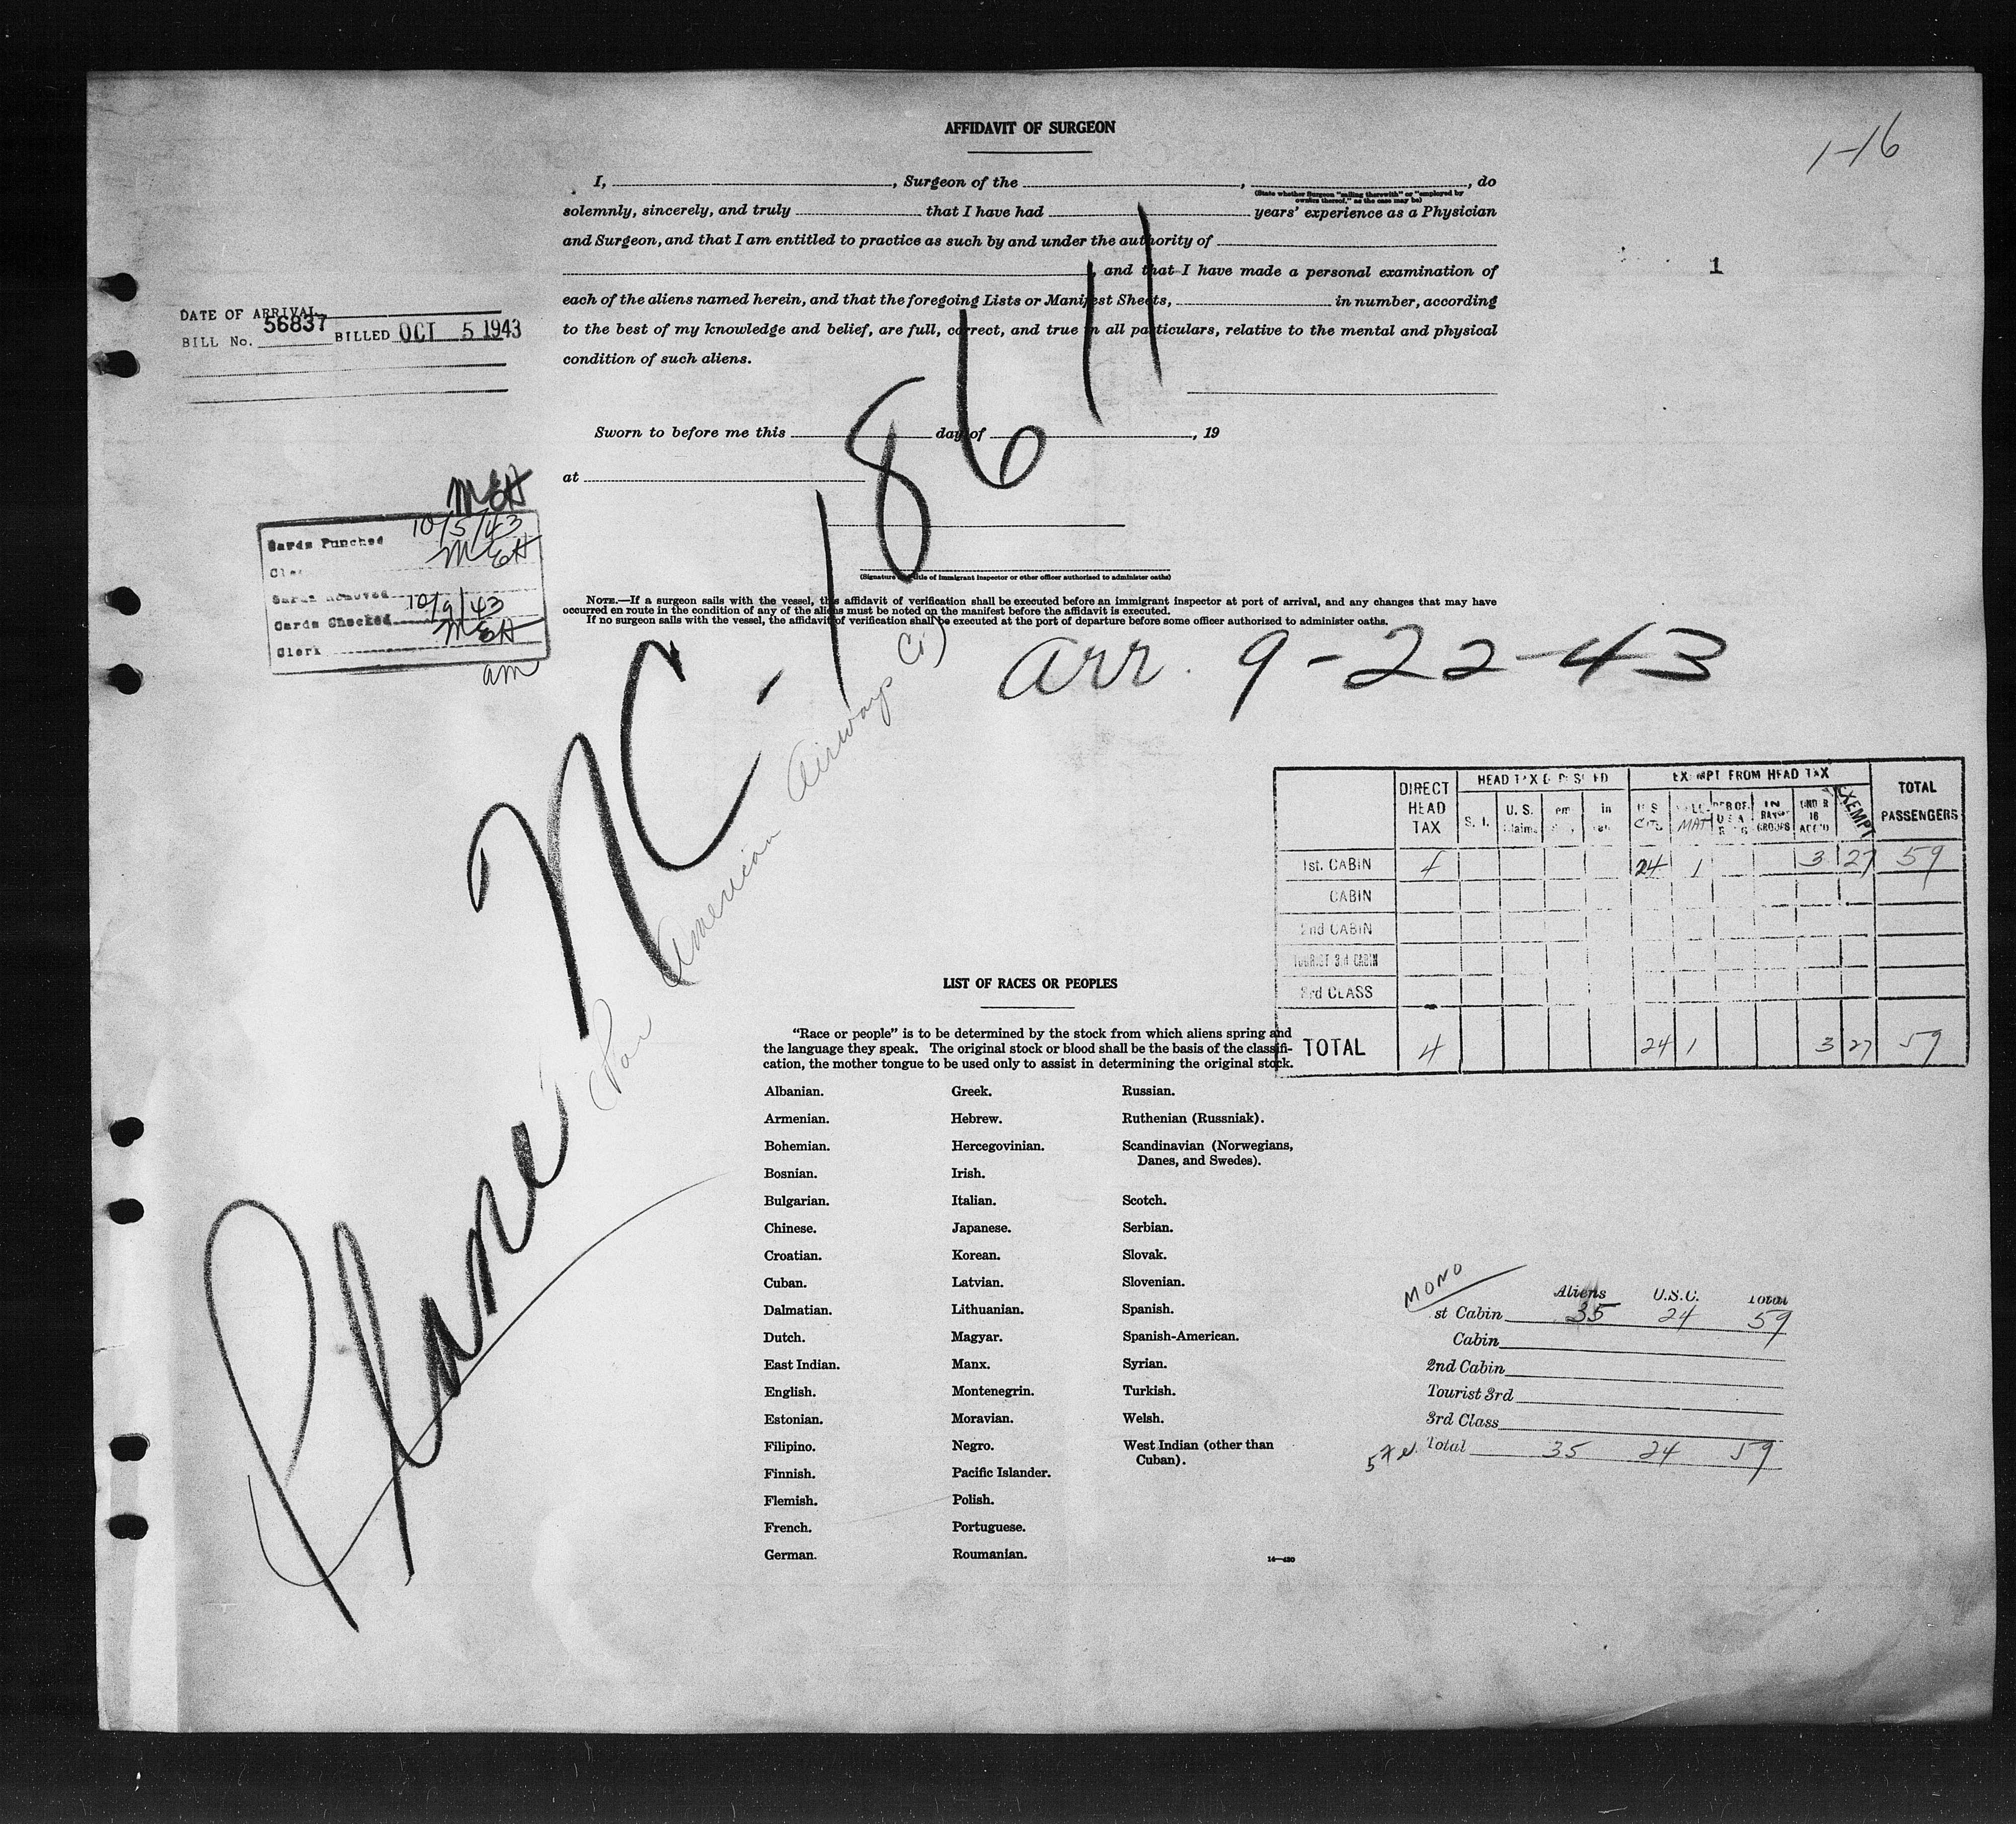 AFFIDAVIT OF SURGEON
1-16
I, , Surgeon of the , , do
(State whether Surgeon "sailing therewith" or "employed by
owners thereof," as the case may be)
solemnly, sincerely, and truly that I have had years' experience as a Physician
and Surgeon, and that I am entitled to practice as such by and under the authority of
, and that I have made a personal examination of
1
each of the aliens named herein, and that the foregoing Lists or Manifest Sheets, in number, according
to the best of my knowledge and belief, are full, correct, and true in all particulars, relative to the mental and physical
condition of such aliens.
DATE OF ARRIVAL
BILL No. 56837 BILLED OCT 5 1943
Sworn to before me this day of , 19
at
(Signature and title of immigrant inspector or other officer authorized to administer oaths)
MEH
Cards Punched 10/5/43
MEH
Cards Removed
Cards Checked 10/9/43
Clerk MEH
am
NOTE.—If a surgeon sails with the vessel, this affidavit of verification shall be executed before an immigrant inspector at port of arrival, and any changes that may have
occurred en route in the condition of any of the aliens must be noted on the manifest before the affidavit is executed.
If no surgeon sails with the vessel, the affidavit of verification shall be executed at the port of departure before some officer authorized to administer oaths.
arr. 9-22-43
Plane NC-18611
(Pan American Airways Co.)
DIRECT HEAD TAX
HEAD TAX
S. I.
U. S.
EXEMPT FROM HEAD TAX
U S
CITS
MAT
IN
GROUPS
16
EXEMPT
TOTAL PASSENGERS
1st. CABIN 4 24 1 3 27 59
CABIN
2nd CABIN
TOURIST 3rd CABIN
3rd CLASS
TOTAL 4 24 1 3 27 59
LIST OF RACES OR PEOPLES
"Race or people" is to be determined by the stock from which aliens spring and
the language they speak. The original stock or blood shall be the basis of the classifi-
cation, the mother tongue to be used only to assist in determining the original stock.
Albanian.
Armenian.
Bohemian.
Bosnian.
Bulgarian.
Chinese.
Croatian.
Cuban.
Dalmatian.
Dutch.
East Indian.
English.
Estonian.
Filipino.
Finnish.
Flemish.
French.
German.
Greek.
Hebrew.
Hercegovinian.
Irish.
Italian.
Japanese.
Korean.
Latvian.
Lithuanian.
Magyar.
Manx.
Montenegrin.
Moravian.
Negro.
Pacific Islander.
Polish.
Portuguese.
Roumanian.
Russian.
Ruthenian (Russniak).
Scandinavian (Norwegians,
Danes, and Swedes).
Scotch.
Serbian.
Slovak.
Slovenian.
Spanish.
Spanish-American.
Syrian.
Turkish.
Welsh.
West Indian (other than
Cuban).
14—430
MONO
Aliens U.S.C. Total
st Cabin 35 24 59
Cabin
2nd Cabin
Tourist 3rd
3rd Class
Total 35 24 59